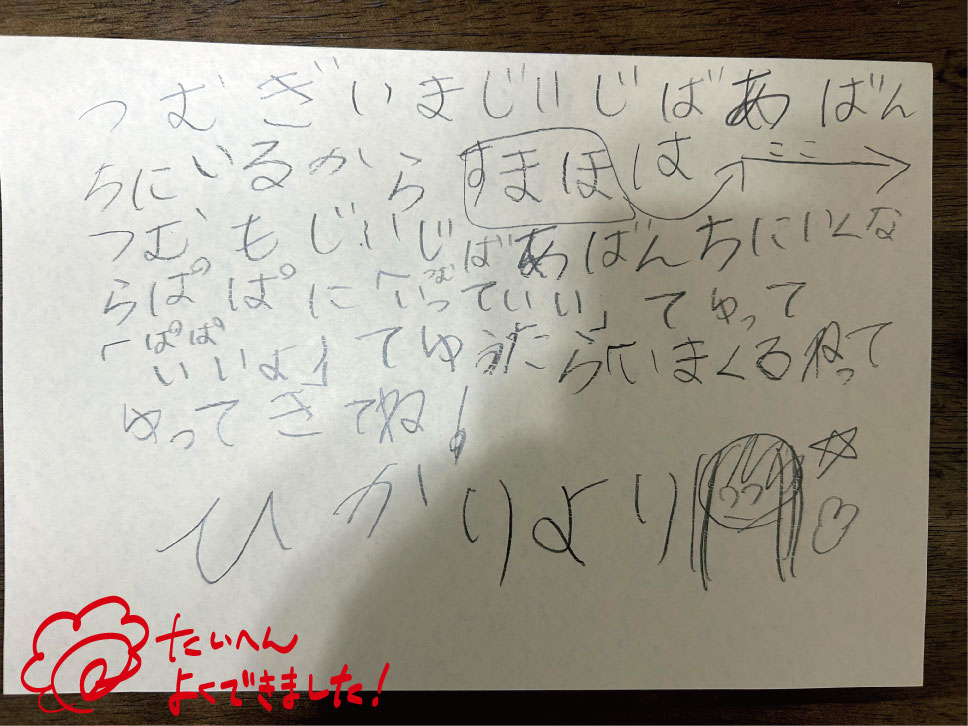 つむぎいまじいじばあばん
ちにいるから すまほは ここ
つむ、もじいじばあばんちにいくな
らぱぱに「いっていい」てゆって
「ぱぱいいよ」てゆったら「いまくるねって
ゆってきてね!
ひかりより
たいへん
よくできました!